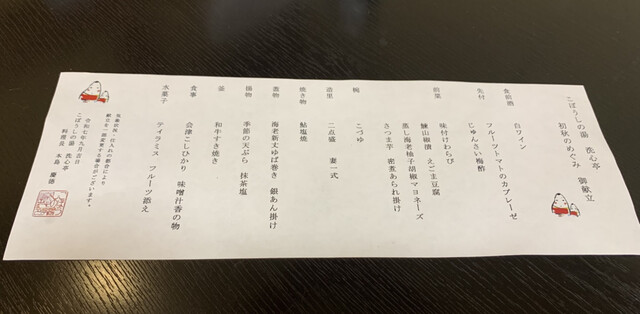 こぼうしの湯 洗心亭
初秋のめぐみ 御献立
食前酒 白ワイン
先付 フルーツトマトのカプレーゼ
じゅんさい梅酢
前菜 味付けわらび
鰊山椒漬 えごま豆腐
蒸し海老柚子胡椒マヨネーズ
さつま芋 密煮あられ掛け
椀 こづゆ
造里 二点盛 妻一式
焼き物 鮎塩焼
煮物 海老新丈ゆば巻き 銀あん掛け
揚物 季節の天ぷら 抹茶塩
釜 和牛すき焼き
食事 会津こしひかり 味噌汁香の物
水菓子 ティラミス フルーツ添え
気象状況・仕入れの都合により
献立を一部変更する場合がございます。
令和七年九月吉日
こぼうしの湯 洗心亭
料理長